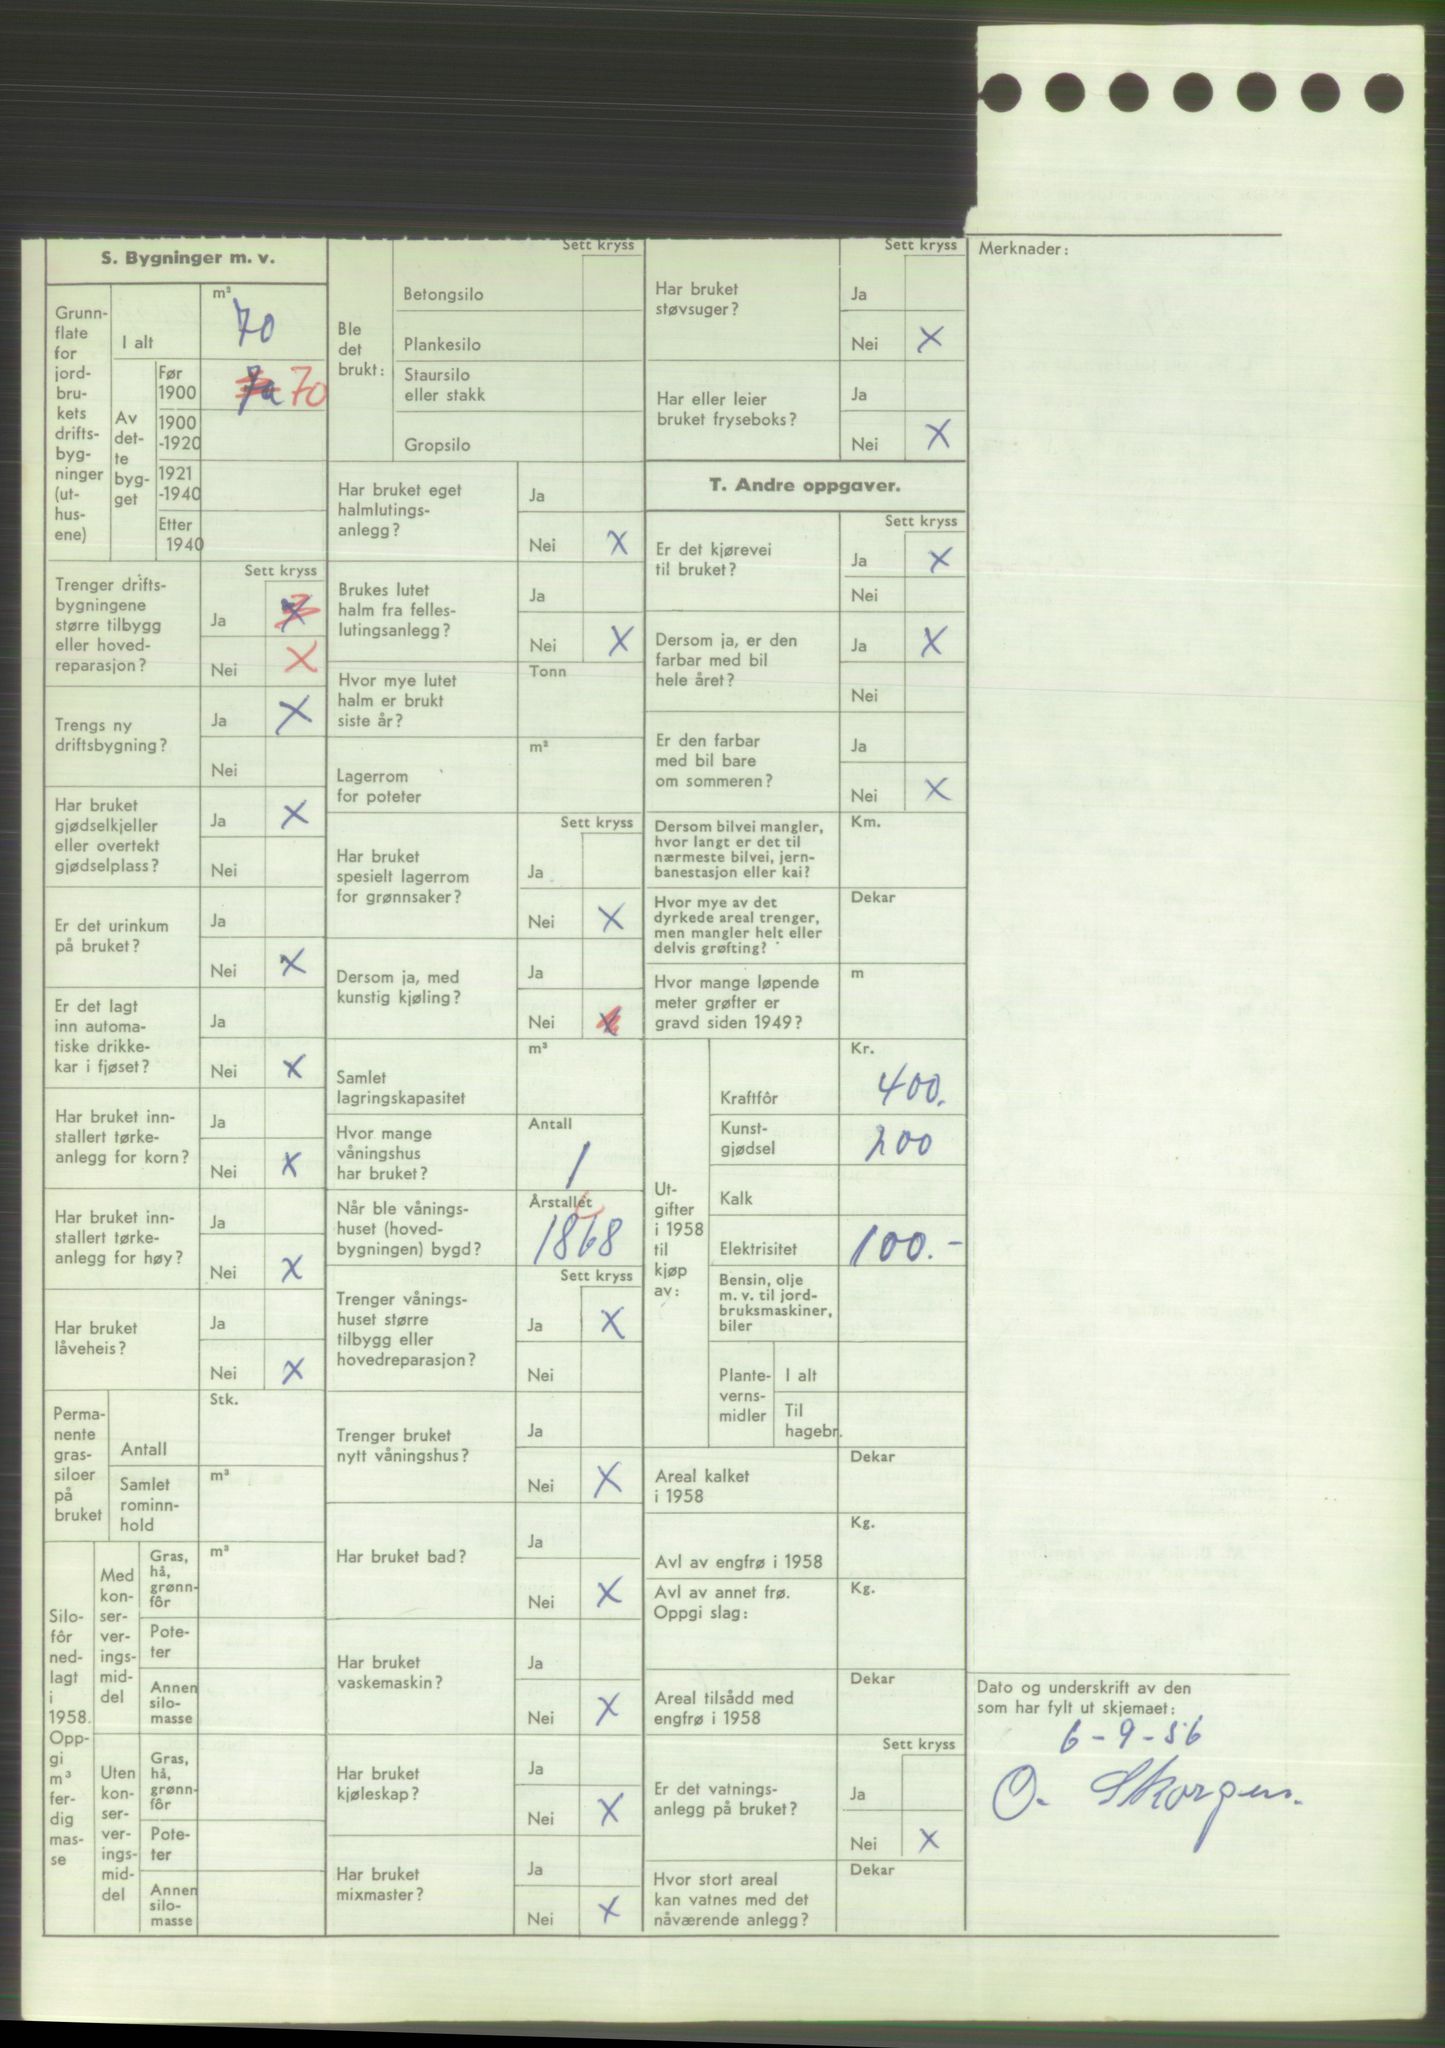 S. Bygninger m. v.
Grunn-
flate
for
jord-
bru-
kets
drifts-
byg-
ninger
(ut-
hus-
ene)
I alt
m²
70
Av
det-
te
byg-
get
Før
1900
70
1900
-1920
1921
-1940
Etter
1940
Sett kryss
Trenger drifts-
bygningene
større tilbygg
eller hoved-
reparasjon?
Ja X
Nei X
Trengs ny
driftsbygning?
Ja X
Nei
Har bruket
gjødselkjeller
eller overtekt
gjødselplass?
Ja X
Nei
Er det urinkum
på bruket?
Ja
Nei X
Er det lagt
inn automa-
tiske drikke-
kar i fjøset?
Ja
Nei X
Har bruket inn-
stallert tørke-
anlegg for korn?
Ja
Nei X
Har bruket inn-
stallert tørke-
anlegg for høy?
Ja
Nei X
Har bruket
låveheis?
Ja
Nei X
Perma-
nente
gras-
siloer
på
bruket
Antall
Stk.
Samlet
rominn-
hold
m³
Silo-
fôr
ned-
lagt
i
1958.
Opp-
gi
m³
fer-
dig
mas-
se
Med
kon-
ser-
ver-
ings-
mid-
del
Gras,
hå,
grønn-
fôr
m³
Pote-
ter
Annen
silo-
masse
Uten
kon-
ser-
ver-
ings-
mid-
del
Gras,
hå,
grønn-
fôr
Pote-
ter
Annen
silo-
masse
Sett kryss
Ble
det
brukt:
Betongsilo
Plankesilo
Staursilo
eller stakk
Gropsilo
Har bruket eget
halmlutings-
anlegg?
Ja
Nei X
Brukes lutet
halm fra felles-
lutingsanlegg?
Ja
Nei X
Hvor mye lutet
halm er brukt
siste år?
Tonn
Lagerrom
for poteter
m²
Sett kryss
Har bruket
spesielt lagerrom
for grønnsaker?
Ja
Nei X
Dersom ja, med
kunstig kjøling?
Ja
Nei X
Samlet
lagringskapasitet
m³
Hvor mange
våningshus
har bruket?
Antall
1
Når ble vånings-
huset (hoved-
bygningen) bygd?
Årstallet
1868
Sett kryss
Trenger vånings-
huset større
tilbygg eller
hovedreparasjon?
Ja X
Nei
Trenger bruket
nytt våningshus?
Ja
Nei X
Har bruket bad?
Ja
Nei X
Har bruket
vaskemaskin?
Ja
Nei X
Har bruket
kjøleskap?
Ja
Nei X
Har bruket
mixmaster?
Ja
Nei X
Sett kryss
Har bruket
støvsuger?
Ja
Nei X
Har eller leier
bruket fryseboks?
Ja
Nei X
T. Andre oppgaver.
Sett kryss
Er det kjørevei
til bruket?
Ja X
Nei
Dersom ja, er den
farbar med bil
hele året?
Ja X
Nei
Er den farbar
med bil bare
om sommeren?
Ja
Nei X
Dersom bilvei mangler,
hvor langt er det til
nærmeste bilvei, jern-
banestasjon eller kai?
Km.
Hvor mye av det
dyrkede areal trenger,
men mangler helt eller
delvis grøfting?
Dekar
Hvor mange løpende
meter grøfter er
gravd siden 1949?
m
Ut-
gifter
i 1958
til
kjøp
av:
Kr.
Kraftfôr
400.
Kunst-
gjødsel
200
Kalk
Elektrisitet
100.-
Bensin, olje
m. v. til jord-
bruksmaskiner,
biler
Plante-
verns-
midler
I alt
Til
hagebr.
Areal kalket
i 1958
Dekar
Avl av engfrø i 1958
Kg.
Avl av annet frø.
Oppgi slag:
Kg.
Areal tilsådd med
engfrø i 1958
Dekar
Sett kryss
Er det vatnings-
anlegg på bruket?
Ja
Nei X
Hvor stort areal
kan vatnes med det
nåværende anlegg?
Dekar
Merknader:
Dato og underskrift av den
som har fylt ut skjemaet:
6-9-56
O. Skorgen.